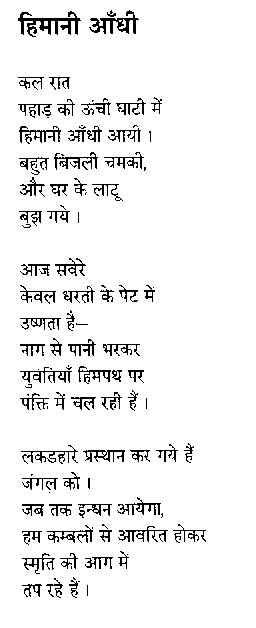 हिमानी आँधी
कल रात
पहाड़ की ऊंची घाटी में
हिमानी आँधी आयी ।
बहुत बिजली चमकी,
और घर के लाटू
बुझ गये ।
आज सवेरे
केवल धरती के पेट में
उष्णता है—
नाग से पानी भरकर
युवतियाँ हिमपथ पर
पंक्ति में चल रही हैं ।
लकडहारे प्रस्थान कर गये हैं
जंगल को ।
जब तक इन्धन आयेगा,
हम कम्बलों से आवरित होकर
स्मृति की आग में
तप रहे हैं ।